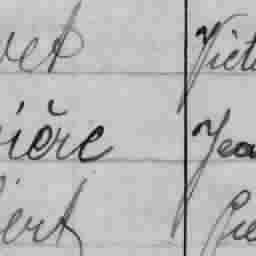 vet Victo
ière Jea
bert Pie